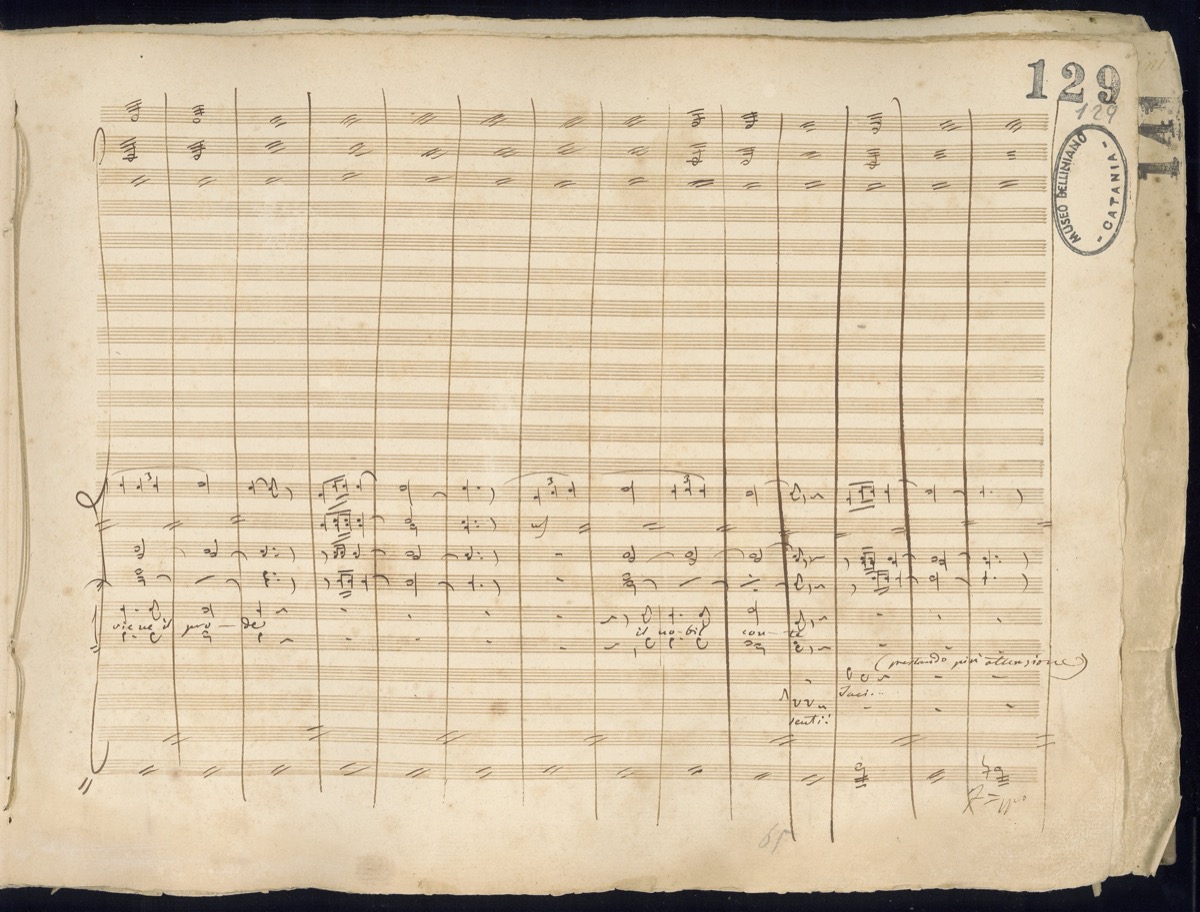 129
129
141
MUSEO BELLINIANO
- CATANIA -
3 3 3
viene il pro - de il no-bil con - te
(prestando più attenzione)
Taci...
senti!